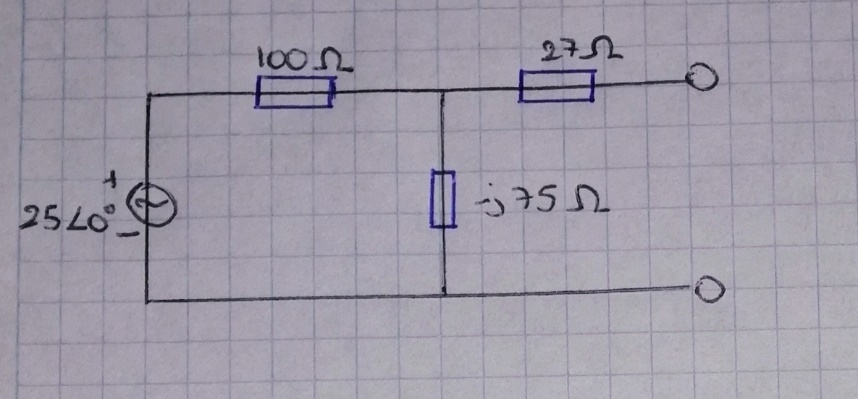 100 Ω
27 Ω
+
25∠0°
−
-j75 Ω